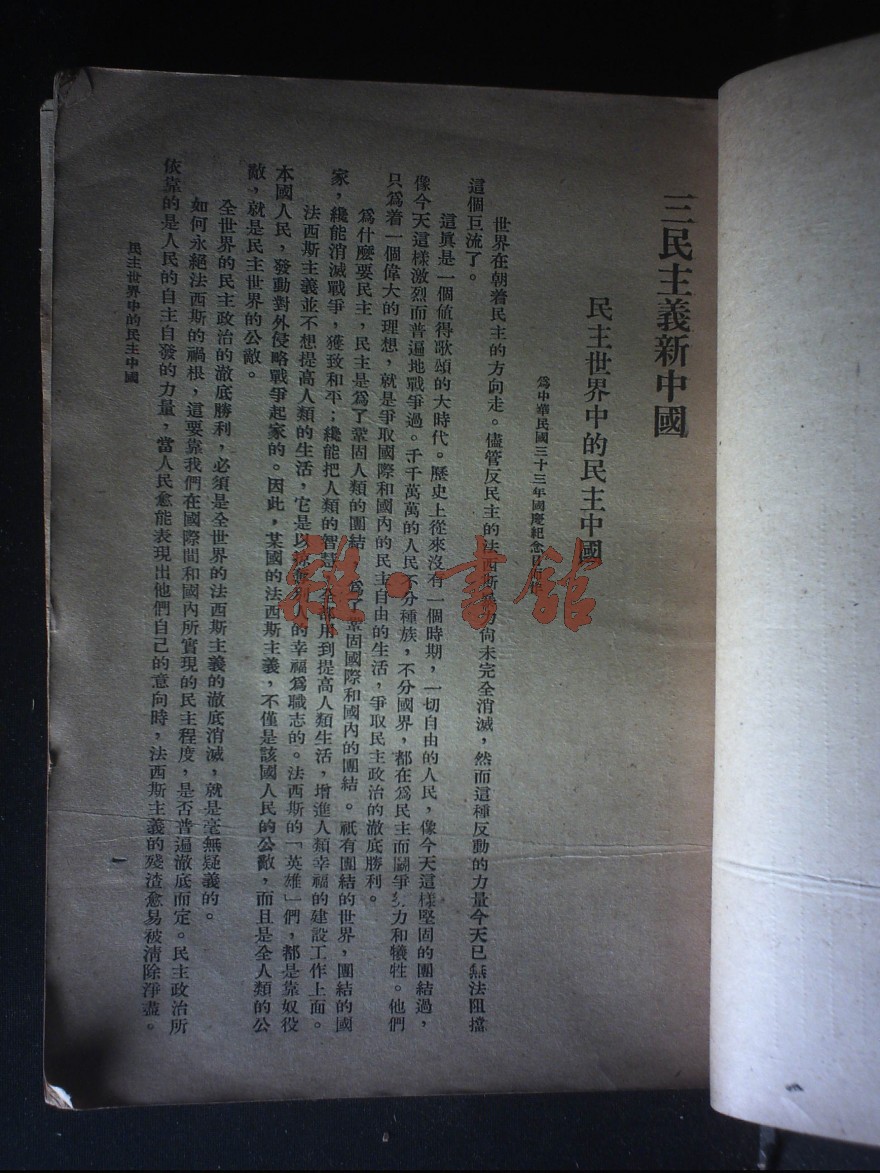 三民主義新中國
民主世界中的民主中國
爲中華民國三十三年國慶紀念日
世界在朝着民主的方向走。儘管反民主的法西斯 力尙未完全消滅，然而這種反動的力量今天已無法阻擋
這個巨流了。
這眞是一個値得歌頌的大時代。歷史上從來沒有一個時期，一切自由的人民，像今天這樣堅固的團結過，
像今天這樣激烈而普遍地戰爭過。千千萬萬的人民不分種族，不分國界，都在爲民主而鬭爭 力和犧牲。他們
只爲着一個偉大的理想，就是爭取國際和國內的民主自由的生活，爭取民主政治的澈底勝利。
爲什麼要民主，民主是爲了鞏固人類的團結 爲了鞏固國際和國內的團結。祇有團結的世界，團結的國
家，纔能消滅戰爭，獲致和平；纔能把人類的智慧 全部用到提高人類生活，增進人類幸福的建設工作上面。
法西斯主義並不想提高人類的生活，它是以 別人的幸福爲職志的。法西斯的「英雄」們，都是靠奴役
本國人民，發動對外侵略戰爭起家的。因此，某國的法西斯主義，不僅是該國人民的公敵，而且是全人類的公
敵，就是民主世界的公敵。
全世界的民主政治的澈底勝利，必須是全世界的法西斯主義的澈底消滅，就是毫無疑義的。
如何永絕法西斯的禍根，這要靠我們在國際間和國內所實現的民主程度，是否普遍澈底而定。民主政治所
依靠的是人民的自主自發的力量，當人民愈能表現出他們自己的意向時，法西斯主義的殘渣愈易被清除淨盡。
民主世界中的民主中國
雜·書館